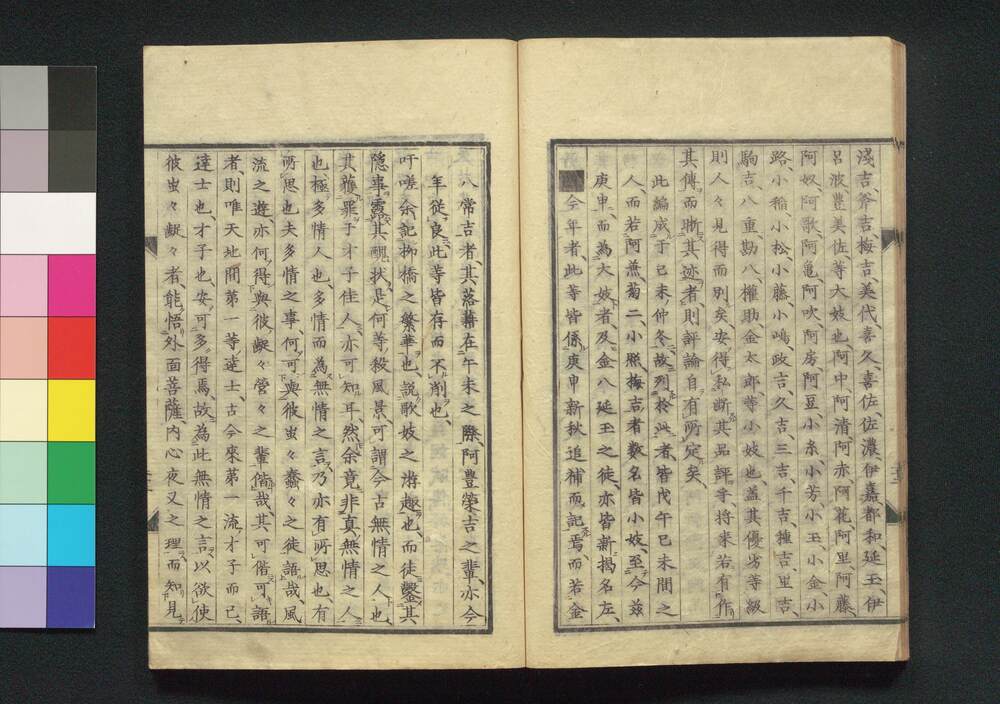 淺吉、斧吉、梅吉、美代、喜久、喜佐、佐濃、伊嘉、都和、延玉、伊
呂波、豊美佐等大妓也、阿中、阿清、阿赤、阿花、阿里、阿藤、
阿奴、阿歌、阿亀、阿吹、阿房、阿豆、小糸、小芳、小玉、小金、小
路、小稲、小松、小藤、小嶋、政吉、久吉、三吉、千吉、種吉、里吉、
駒吉、八重、勘八、權助、金太郎、等小妓也、蓋其優劣等級
則人々見得而別矣、安得私断其品評乎、将来若有作
其傳而晰其迹者、則評論自有所定矣、
此編成于己未仲冬、故列於此者、皆戊午己未間之
人、而若阿燕菊二小照梅吉者数名皆小妓、至今茲
庚申、而為大妓者、及金八延玉之徒、亦皆新掲名、左、
今年者、此等皆係庚申新秋追補而記焉、而若金
八常吉者、其落籍在午未之際、阿豊榮吉之輩、亦今
年從良、此等皆存而不削也、
吁嗟余記柳橋之繁華也、説歌妓之游趣也、而徒鑿其
隱事、露其醜状、是何等殺風景、可謂今古無情之人也、
其獲罪于才子佳人、亦可知耳、然余竟非真無情之人
也、極多情人也、多情而為無情之言、乃亦有所思也、有
所思也夫、多情之事、何可與彼蚩々蠢々之徒語哉、風
流之遊、亦何得與彼齷々營々之輩偕哉、其可偕可語
者、則唯天地間第一等達士、古今來第一流才子而已、
達士也、才子也、安可多得焉、故為此無情之言、以欲使
彼蚩々齷々者、能悟外面菩薩、内心夜叉之理、而知見